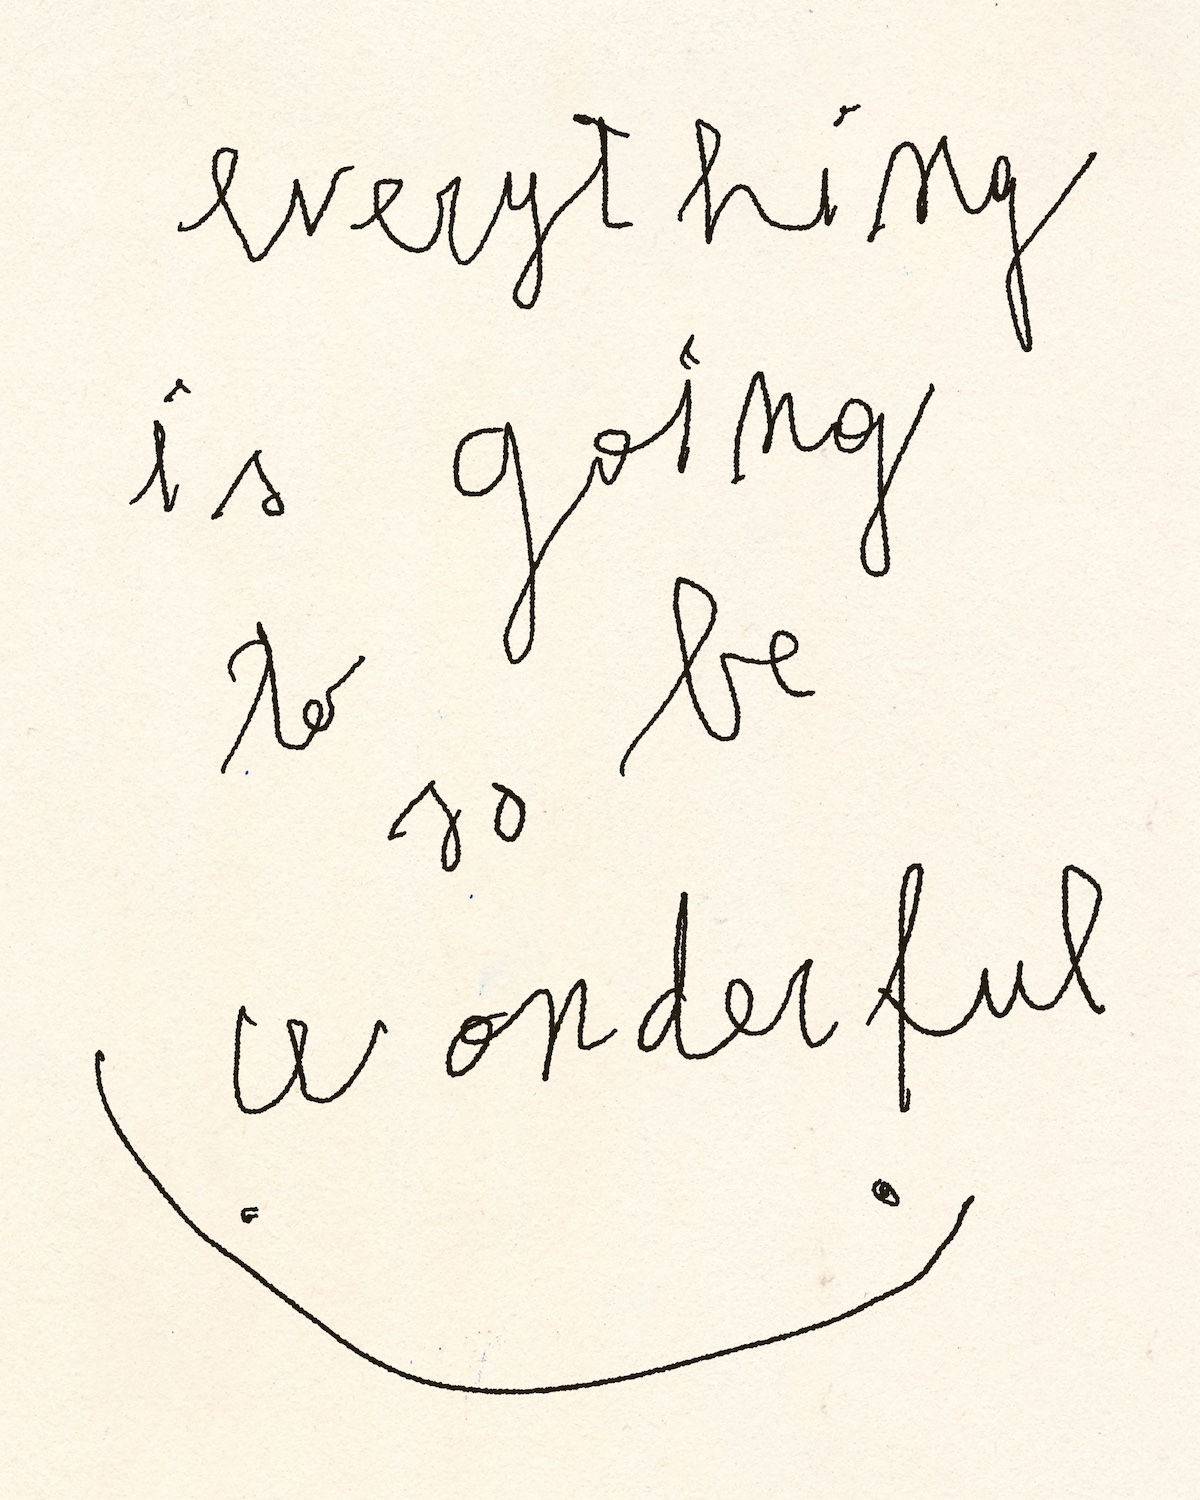 everything
is going
to be
so
wonderful